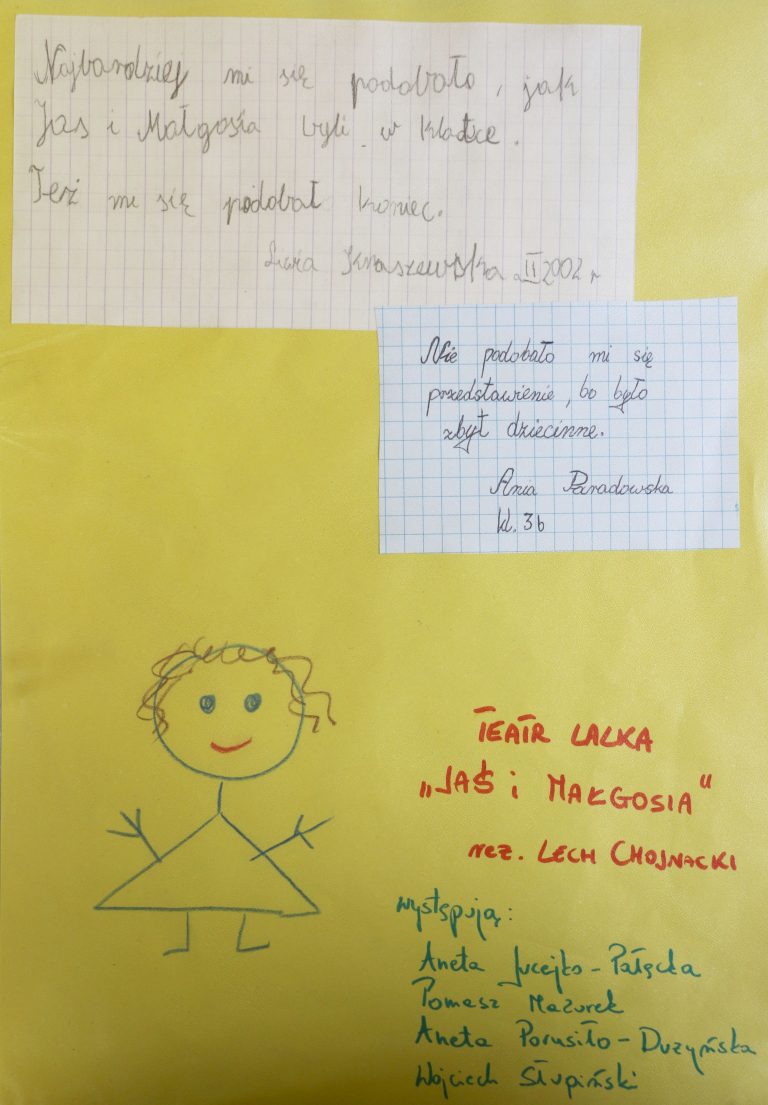 Najbardziej mi się podobało, jak
Jaś i Małgosia byli w klatce.
Też mi się podobał koniec.
Kraszewska II 2002 r
Nie podobało mi się
przedstawienie, bo było
zbyt dziecinne.
Ania Paradowska
kl. 3b
TEATR LALKA
„JAŚ i MAŁGOSIA"
reż. LECH CHOJNACKI
występują:
Aneta Jucejko-Pałęcka
Tomasz Mazurek
Aneta Porusiło-Dużyńska
Wojciech Słupiński